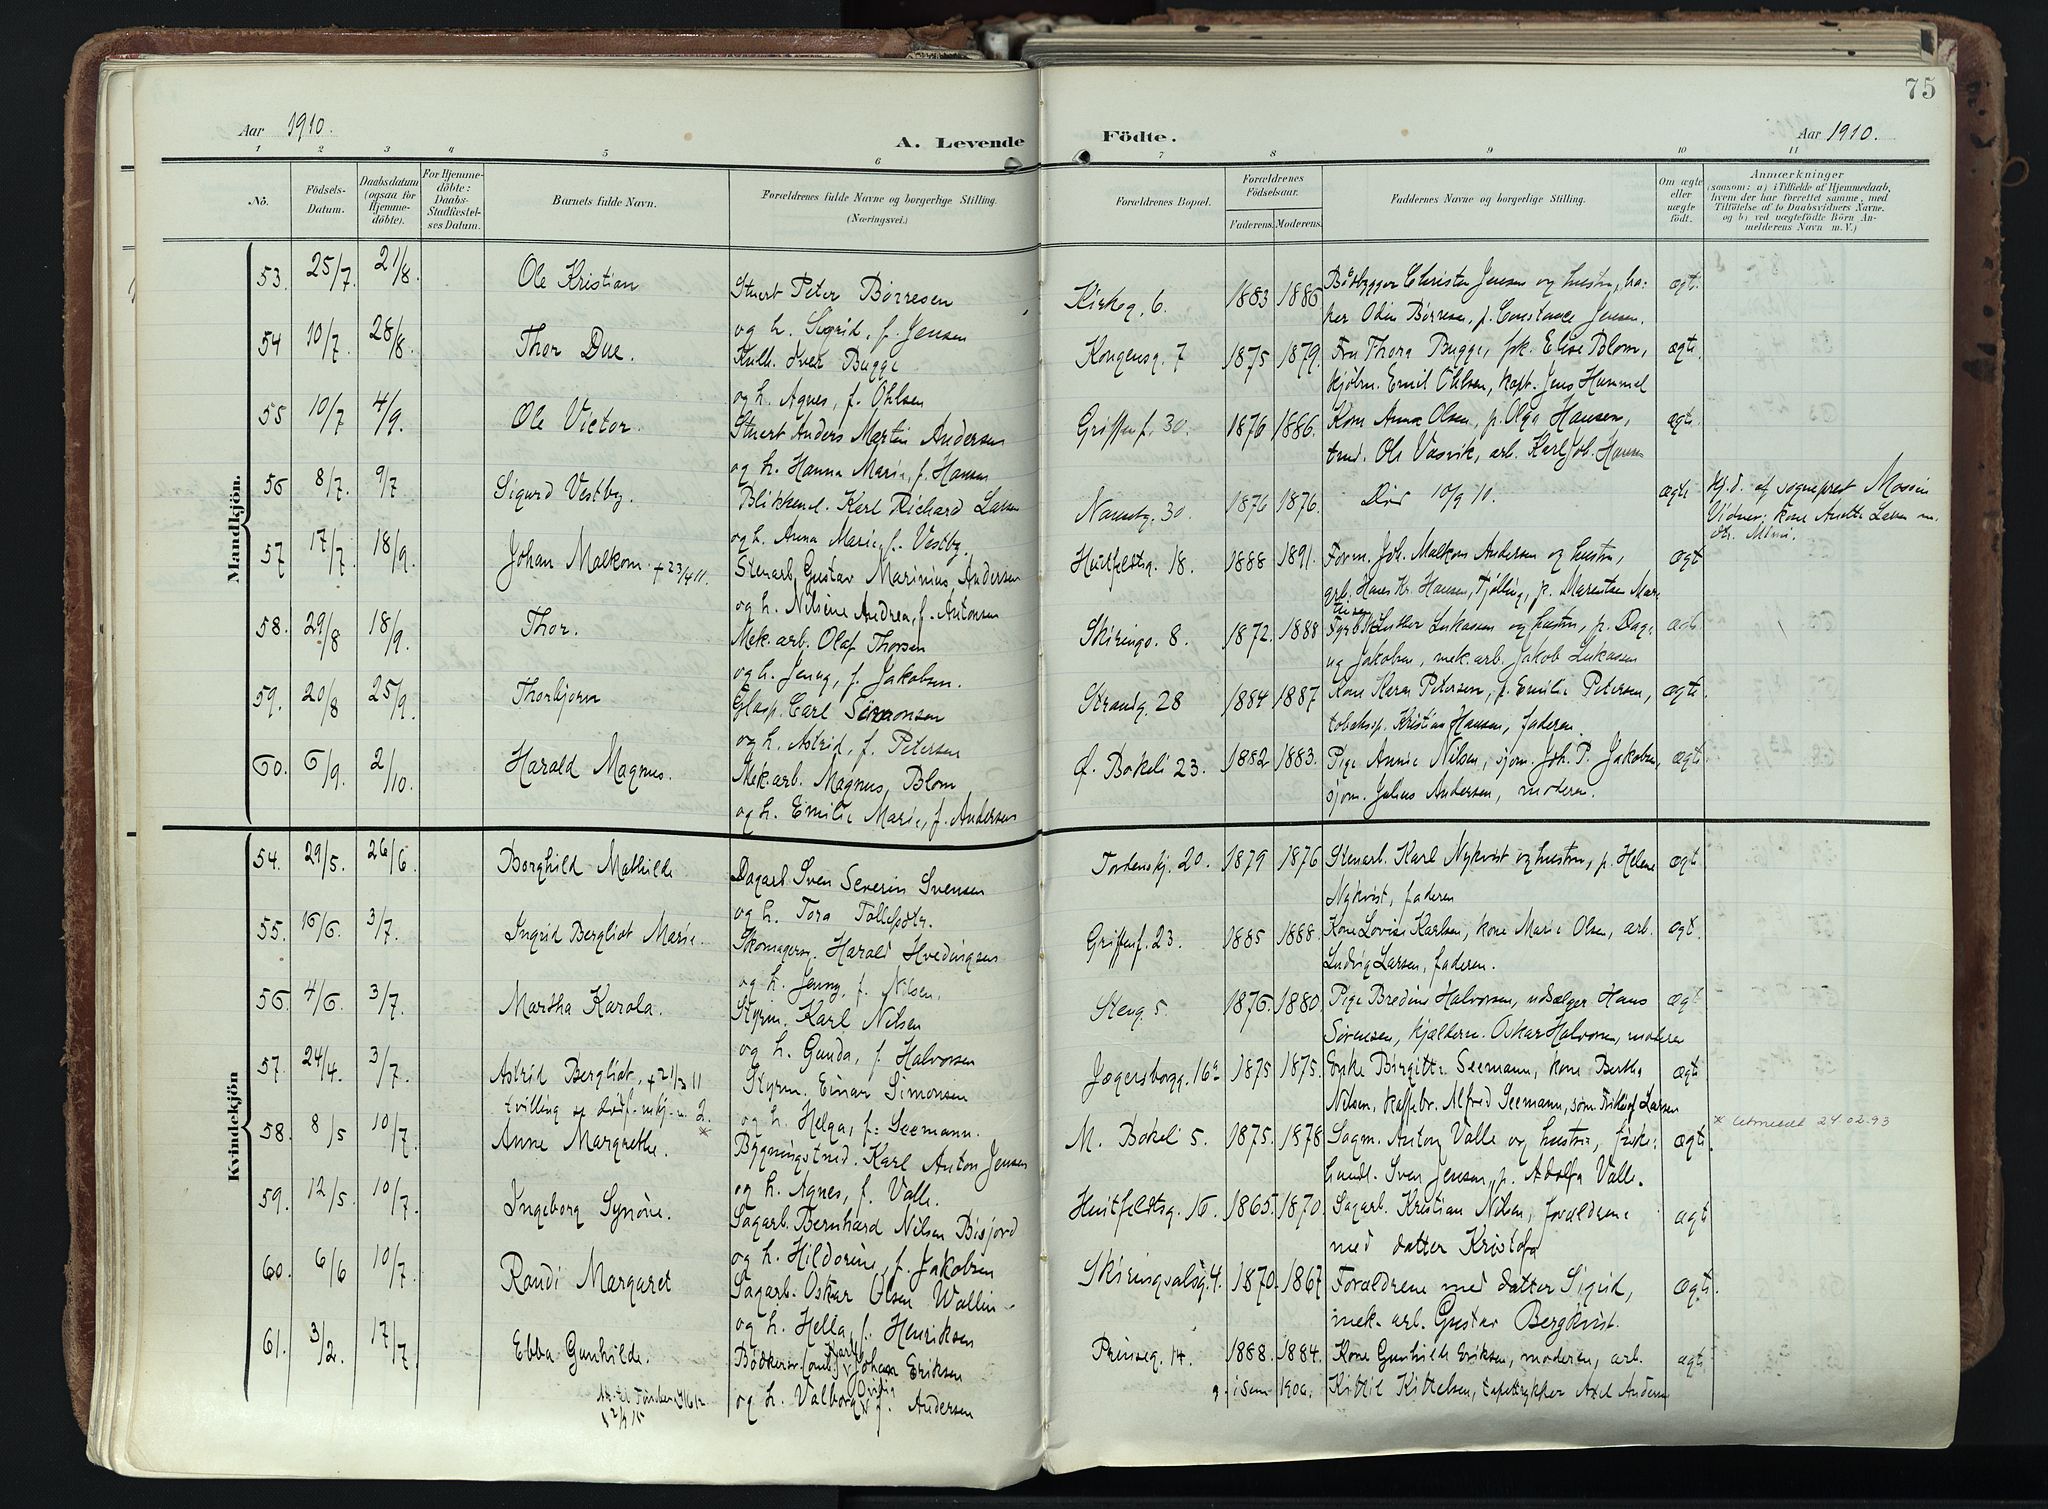 75
Aar 1910.
A. Levende Födte.
Aar 1910.
1 2 3 4 5 6 7 8 9 10 11
No.
Födsels-Datum.
Daabsdatum (ogsaa for Hjemmedöbte).
For Hjemmedöbte: Daabs-Stadfæstelses Datum.
Barnets fulde Navn.
Forældrenes fulde Navne og borgerlige Stilling.
(Næringsvei.)
Forældrenes Bopæl.
Forældrenes Födselsaar.
Faderens. Moderens.
Faddernes Navne og borgerlige Stilling.
Om ægte eller uægte födt.
Anmærkninger
(saasom: a) i Tilfælde af Hjemmedaab, hvem der har forrettet samme, med Tilföielse af to Daabsvidners Navne, og b) ved uægtefödte Börn Anmelderens Navn m. V.)
Mandkjön.
53. 25/7. 21/8. Ole Kristian
Stuert Peter Børresen
og h. Sigrid, f. Jensen
Kirkeg. 6. 1883 1886
Bådbygger Christen Jensen og hustru,
Odin Børresen, p. Constance Jensen.
ægt.
54 10/7. 28/8. Thor Due.
Iver Bugge
og h. Agnes, f. Ohlsen
Kongensg. 7 1875 1879.
Fru Thora Bugge, frk. Elise Blom,
kjøbm. Emil Ohlsen, kapt. Jens Hummel
ægte
55 10/7 4/9. Ole Victor.
Stuert Anders Martin Andersen
og h. Hanna Marie, f. Hansen
Griffenf. 30. 1876 1886.
Kone Anna Olsen, p. Olga Hansen,
tmd. Ole Vasvik, arb. Karl Joh. Hansen
ægte.
56 8/7. 9/7 Sigurd Vestby.
Blikkensl. Karl Richard Larsen
og h. Anna Marie, f. Vestby.
Nansetg. 30 1876 1876.
Død 10/9 10.
ægte
Hj.d. af sognepræst Mossin
Vidner: kone Anette Larsen
57 17/7 18/9. Johan Malkom. + 23/4 11.
Stenarb. Gustav Marinius Andersen
og h. Nilsine Andrea, f. Antonsen
Huitfeldtsg. 18. 1888 1891.
Form. Joh. Malkom Andersen og hustru,
arb. Hans Kr. Hansen, Tjølling, p. Marentse Martinsen
ægt
58. 29/8 18/9. Thor.
Mek. arb. Olaf Thorsen
og h. Jenny, f. Jakobsen.
Skiringss. 8. 1872. 1888
Luther Lukassen og hustru, p. Dagny
Jakobsen, mek. arb. Jakob Lukassen
59. 20/8 25/9. Thorbjørn
Glasp. Carl Simonsen
og h. Astrid, f. Petersen
Strandg. 28 1884 1887
Kone Karen Petersen, p. Emilie Petersen,
tobaksp. Kristian Hansen, faderen.
ægte
60. 6/9. 2/10. Harald Magnus.
Mek. arb. Magnus Blom
og h. Emilie Marie, f. Andersen
Ø. Bøkeli 23. 1882 1883.
Pige Annie Nilsen, sjøm. Joh. P. Jakobsen,
sjøm. Julius Andersen, moderen.
ægte
Kvindekjön
54. 29/5. 26/6 Borghild Mathilde
Dagarb. Sven Severin Svensen
og h. Tora Tollefsdtr.
Tordenskj. 20. 1879 1876
Stenarb. Karl Nykvist og hustru, p. Helene
Nykvist, faderen
ægt
55. 16/6. 3/7. Ingrid Bergliot Marie.
Skomagersv. Harald Hvedingsen
og h. Jenny, f. Nilsen.
Griffenf. 23. 1885 1888.
Kone Lovise Karlsen, kone Marie Olsen, arb.
Ludvig Larsen, faderen.
ægt.
56. 4/6. 3/7. Martha Karola.
Styrm. Karl Nilsen
og h. Gunda, f. Halvorsen
Steng. 5. 1876. 1880.
Pige Bredine Halvorsen, udsælger Hans
Sørensen, kjælderm. Oskar Halvorsen, moderen
ægt.
57. 24/4. 3/7. Astrid Bergliot, + 21/3 11
tvilling
Styrm. Einar Simonsen
og h. Helga, f: Seemann.
Jægersborgg. 16a 1875 1875.
Enke Birgitte Seemann, kone Bertha
Nilsen, kaffebr. Alfred Seemann, søm. Fridtjof Larsen
ægte
58. 8/5 10/7. Anne Margrethe. *
Bygningstmd. Karl Anton Jensen
og h. Agnes, f. Valle.
M. Bøkeli 5. 1875. 1878
Sagm. Anton Valle og hustru, fiske-
handl. Sven Jensen, p. Adolfa Valle.
ægte
* Utmeldt 24.02.93
59. 12/5. 10/7. Ingeborg Synøve.
Sagarb. Bernhard Nilsen Bisjord
og h. Hildorine, f. Jakobsen
Huitfeldtsg. 16. 1865. 1870.
Sagarb. Kristian Nilsen, forældrene
med datter Kristofa
ægte
60. 6/6 10/7. Randi Margaret
Sagarb. Oskar Olsen Wallin
og h. Hella, f. Henriksen
Skiringsalsg. 4. 1870. 1867.
Forældrene med datter Sigrid,
mek. arb. Gustav Bergkvist.
ægte.
61. 3/2. 17/7. Ebba Gunhilde.
Bødkersv. Karl Johan Eriksen
og h. Valborg f. Andersen
Prinseg. 14. 1888. 1884.
g. i Sem 1906.
Kone Gunhilde Eriksen, moderen, arb.
Kittil Kittelsen, tapettrykker Axel Andersen
ægte